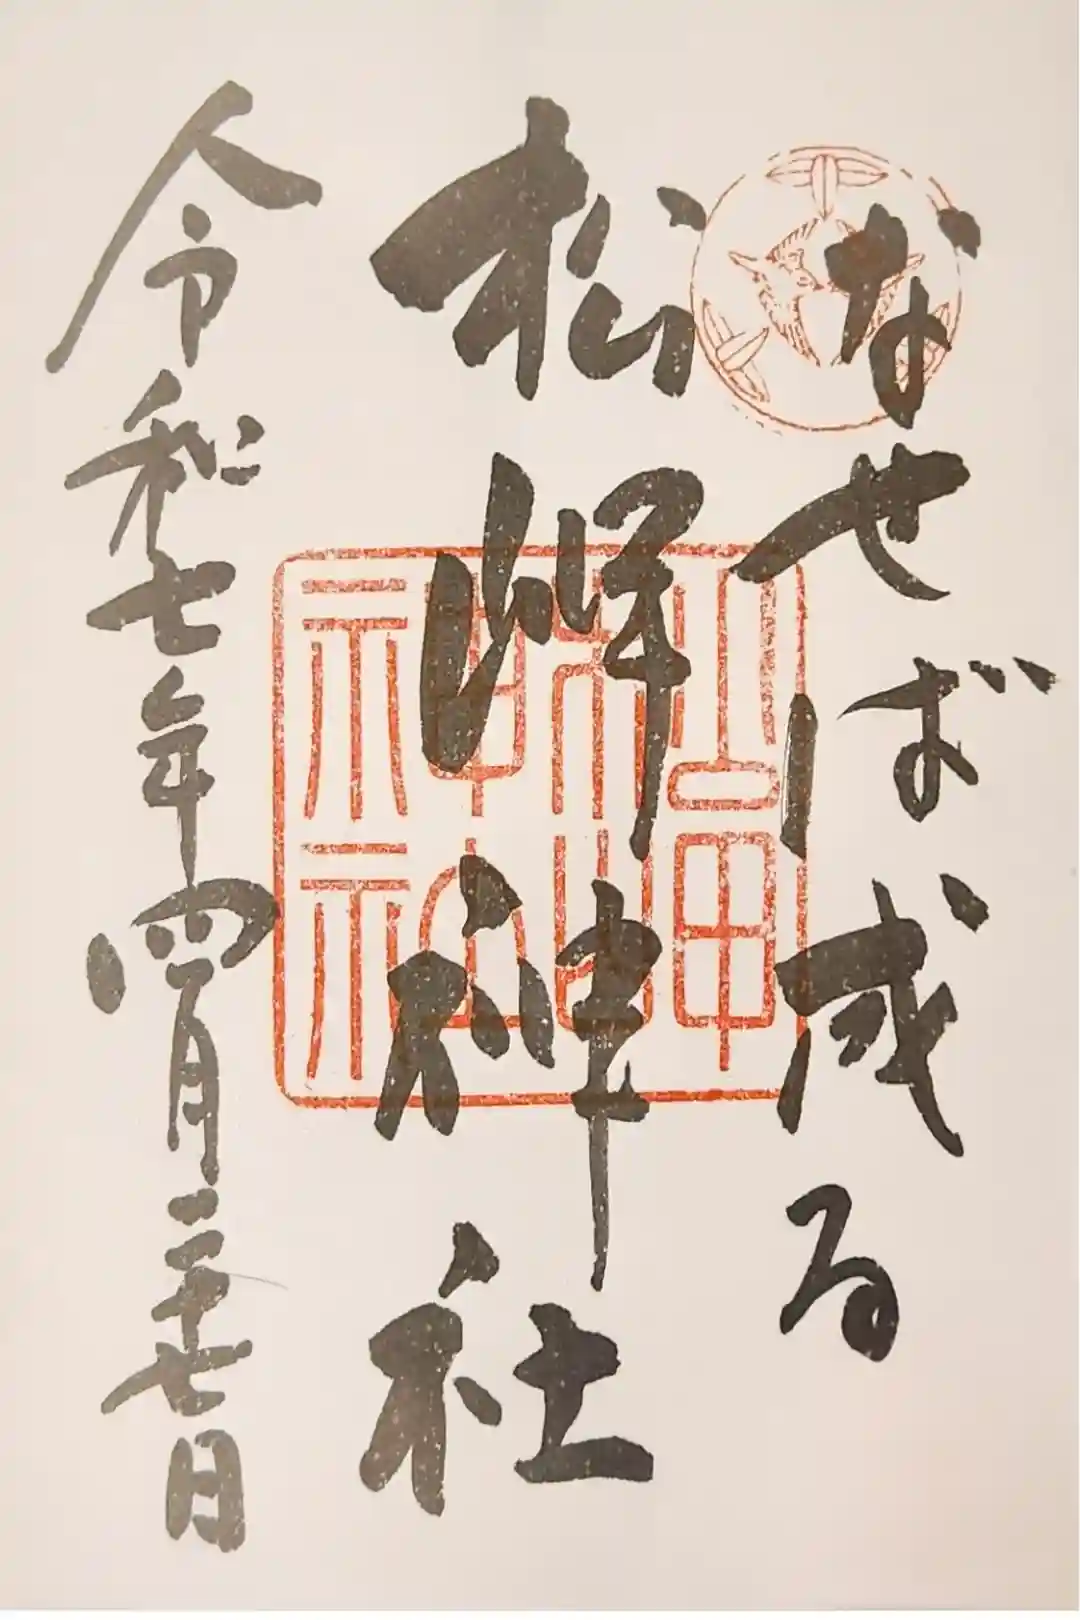 なせば成る
松岬神社
松岬神社
令和七年四月二十七日